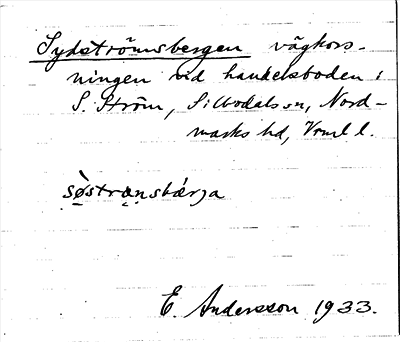 Sydströmsbergen vägkors-
ningen vid handelsboden i
S. Ström, Silbodals sn, Nord-
marks hd, Vrml l.
sø̀strɑnsbǽrja
E. Andersson 1933.